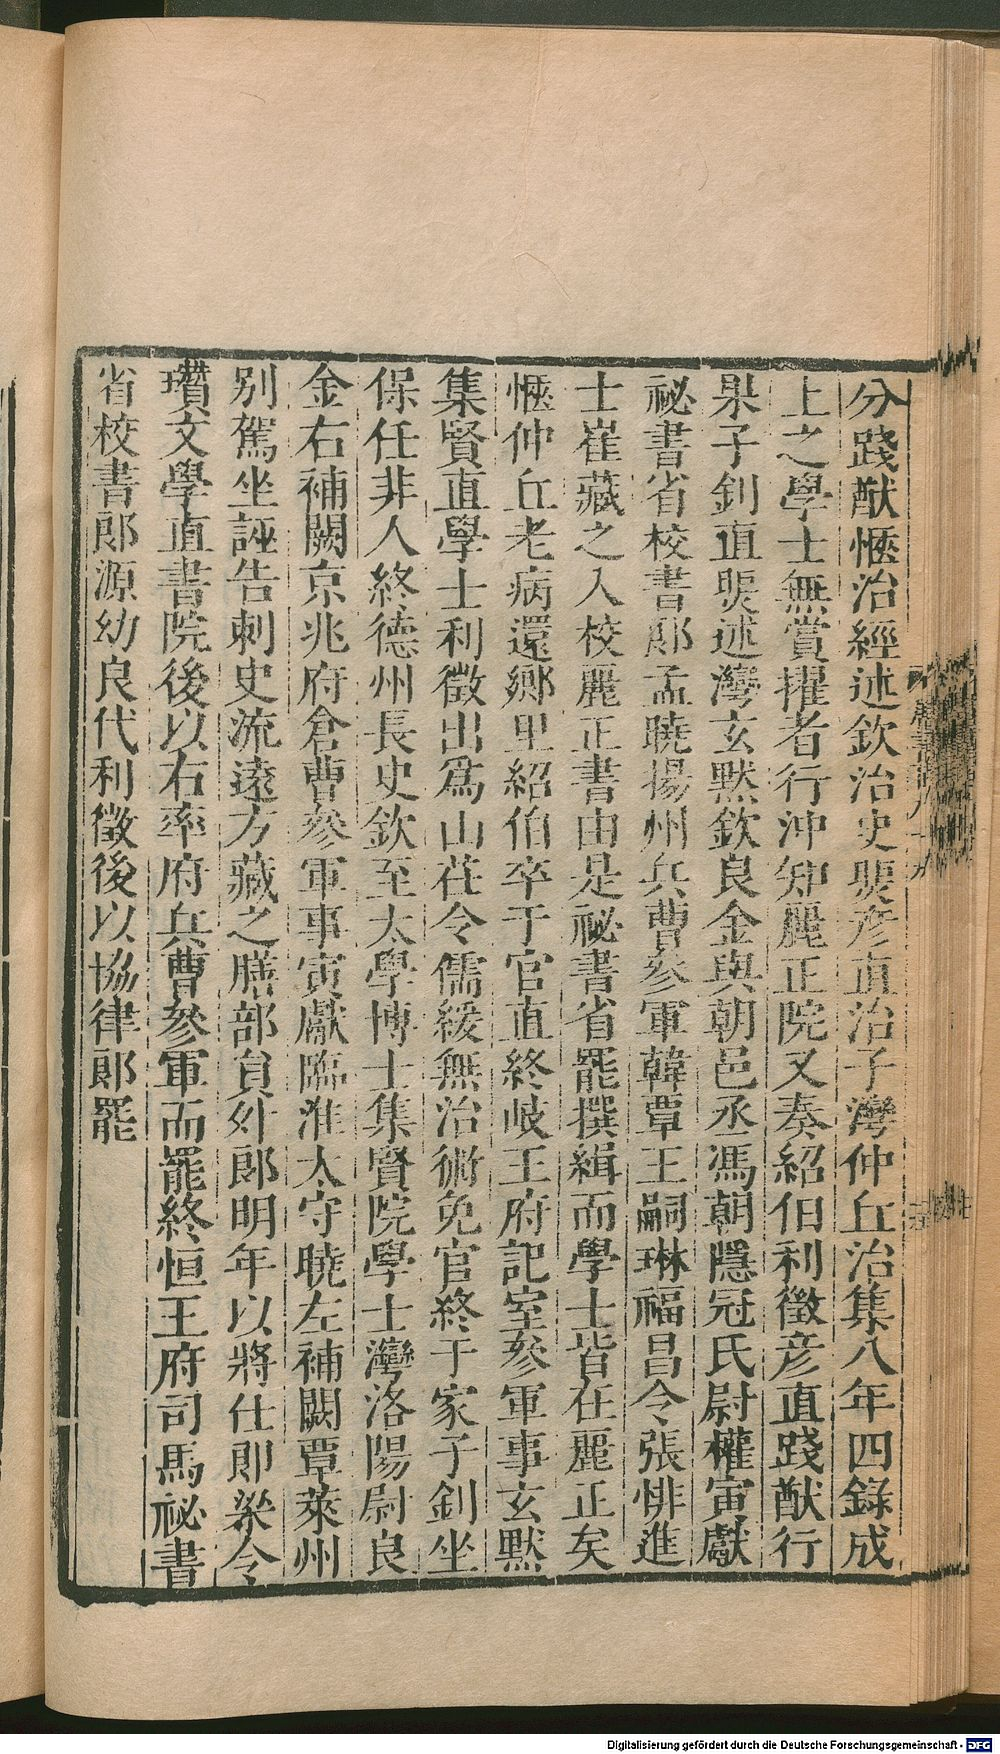 分踐猷愜治經述欽治史裴彦直治子灣仲丘治集八年四錄成
上之學士無賞擢者行沖知麗正院又奏紹伯利徵彦直踐猷行
果子釗直裴述灣玄默欽良金與朝邑丞馮朝隱冠氏尉權寅獻
祕書省校書郞孟曉揚州兵曹參軍韓覃王嗣琳福昌令張悱進
士崔藏之入校麗正書由是祕書省罷撰緝而學士皆在麗正矣
愜仲丘老病還鄉里紹伯卒于官直終岐王府記室參軍事玄默
集賢直學士利徵出爲山茌令儒緩無治術免官終于家子釗坐
保任非人終德州長史欽至太學博士集賢院學士灣洛陽尉良
金右補闕京兆府倉曹參軍事寅獻臨淮太守曉左補闕覃萊州
別駕坐誣告刺史流遠方藏之膳部員外郞明年以將仕郞梁令
瓚文學直書院後以右率府兵曹參軍而罷終恒王府司馬祕書
省校書郞源幼良代利徵後以協律郞罷
Digitalisierung gefördert durch die Deutsche Forschungsgemeinschaft - DFG